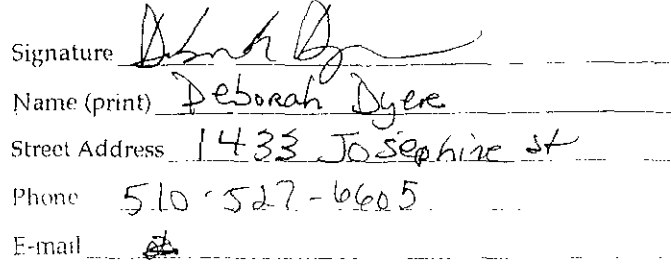 Signature
Name (print) Deborah Dyere
Street Address 1433 Josephine st
Phone 510-527-6605
E-mail